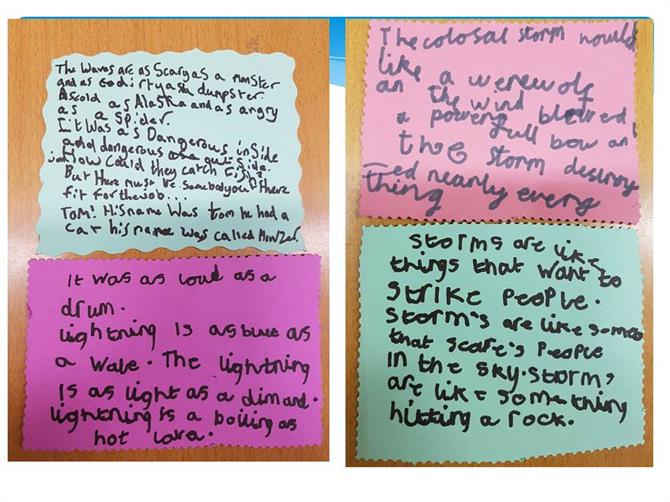 The Waves are as Scary as a monster
and as as dirty as a dumpster.
As cold as Alaska and as angry
as a Spider.
It Was as Dangerous inside
and dangerous as outside.
How could they catch Fish?
But there must be somebody out there
fit for the job...
Tom! His name Was tom he had a
cat his name was called Mowzer
It was as loud as a
drum.
lightning is as blue as
a wave. The lightning
is as light as a dimand.
lightning is a boiling as
hot lava.
The colosal storm
like a werewolf
an the wind blowed
a powerfull bow an
the storm destroy
ed nearly every
thing
Storms are like
things that want to
strike people.
storm's are like some
that scare's people
in the sky. storms
are like something
hitting a rock.